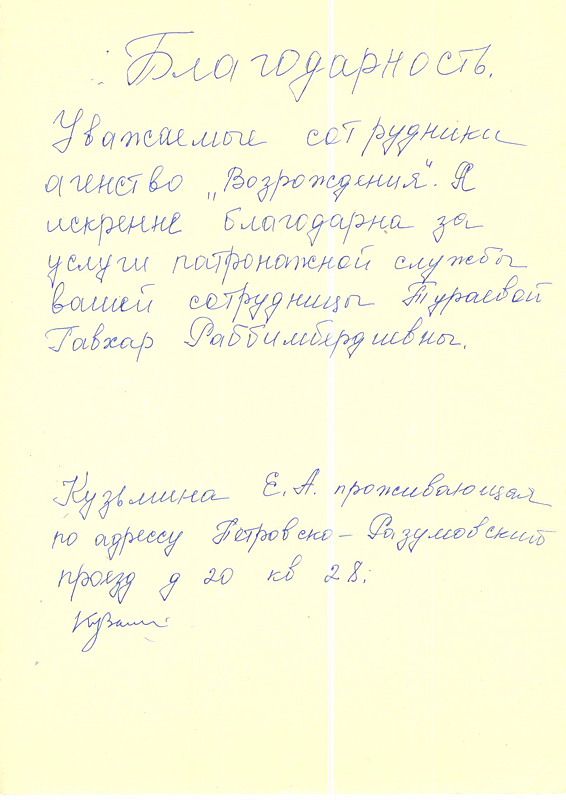 Благодарность.
Уважаемые сотрудники
агенство „Возрождения". Я
искренне благодарна за
услуги патронажной службы
вашей сотрудницы Тураевой
Гавхар Раббимбердиевны.
Кузьмина Е.А. проживающая
по адрессу Петровско-Разумовский
проезд д 20 кв 28.